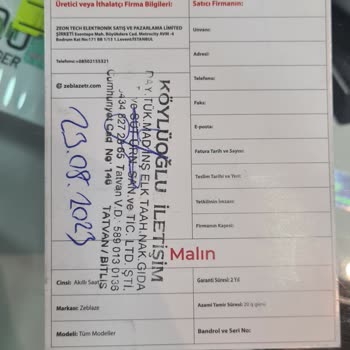 Üretici veya İthalatçı Firma Bilgileri:
ZEON TECH ELEKTRONİK SATIŞ VE PAZARLAMA LİMİTED
ŞİRKETİ Esentepe Mah. Büyükdere Cad. Metrocity AVM. -4
Bodrum Kat No:171 BB 1/13 1.Levent/İSTANBUL
Telefonu:+08502155321
zeblazetr.com
Satıcı Firmanın:
Unvanı:
Adresi:
Telefonu:
Faks:
E-posta:
Fatura Tarih ve Sayısı:
Teslim Tarihi ve Yeri:
Yetkilinin İmzası:
Firmanın Kaşesi:
KÖYLÜOĞLU İLETİŞİM
DAY. TÜK. MAD. İNŞ ELK TAAH. NAK. GIDA
SAN. ve TİC. LTD. ŞTİ.
434 827 26 65 Tatvan V.D. 589 013 0136
Cumhuriyet Cad No: 146
TATVAN / BİTLİS
23.08.2023
Malın
Cinsi: Akıllı Saat
Markası: Zeblaze
Modeli: Tüm Modeller
Garanti Süresi: 2 Yıl
Azami Tamir Süresi: 20 iş günü
Bandrol ve Seri No: